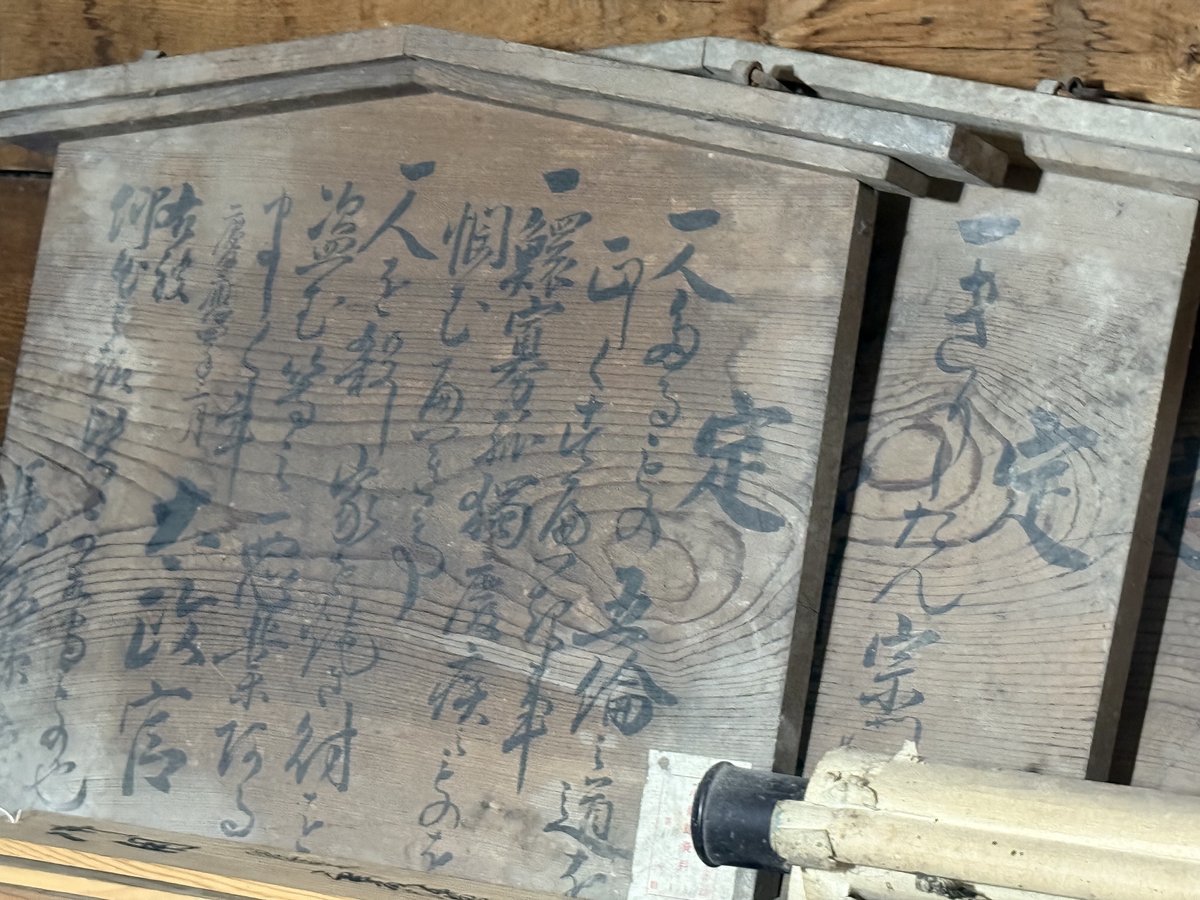 定
一人たるもの五倫之道を
正しくすへき事
一鰥寡孤獨癈疾之ものを
憫むへき事
一人を殺し家を焼き財を
盗む等之惡業阿る
ましく事
慶應四年三月
太政官
右被
仰出
もの也
定
一きりしたん宗門